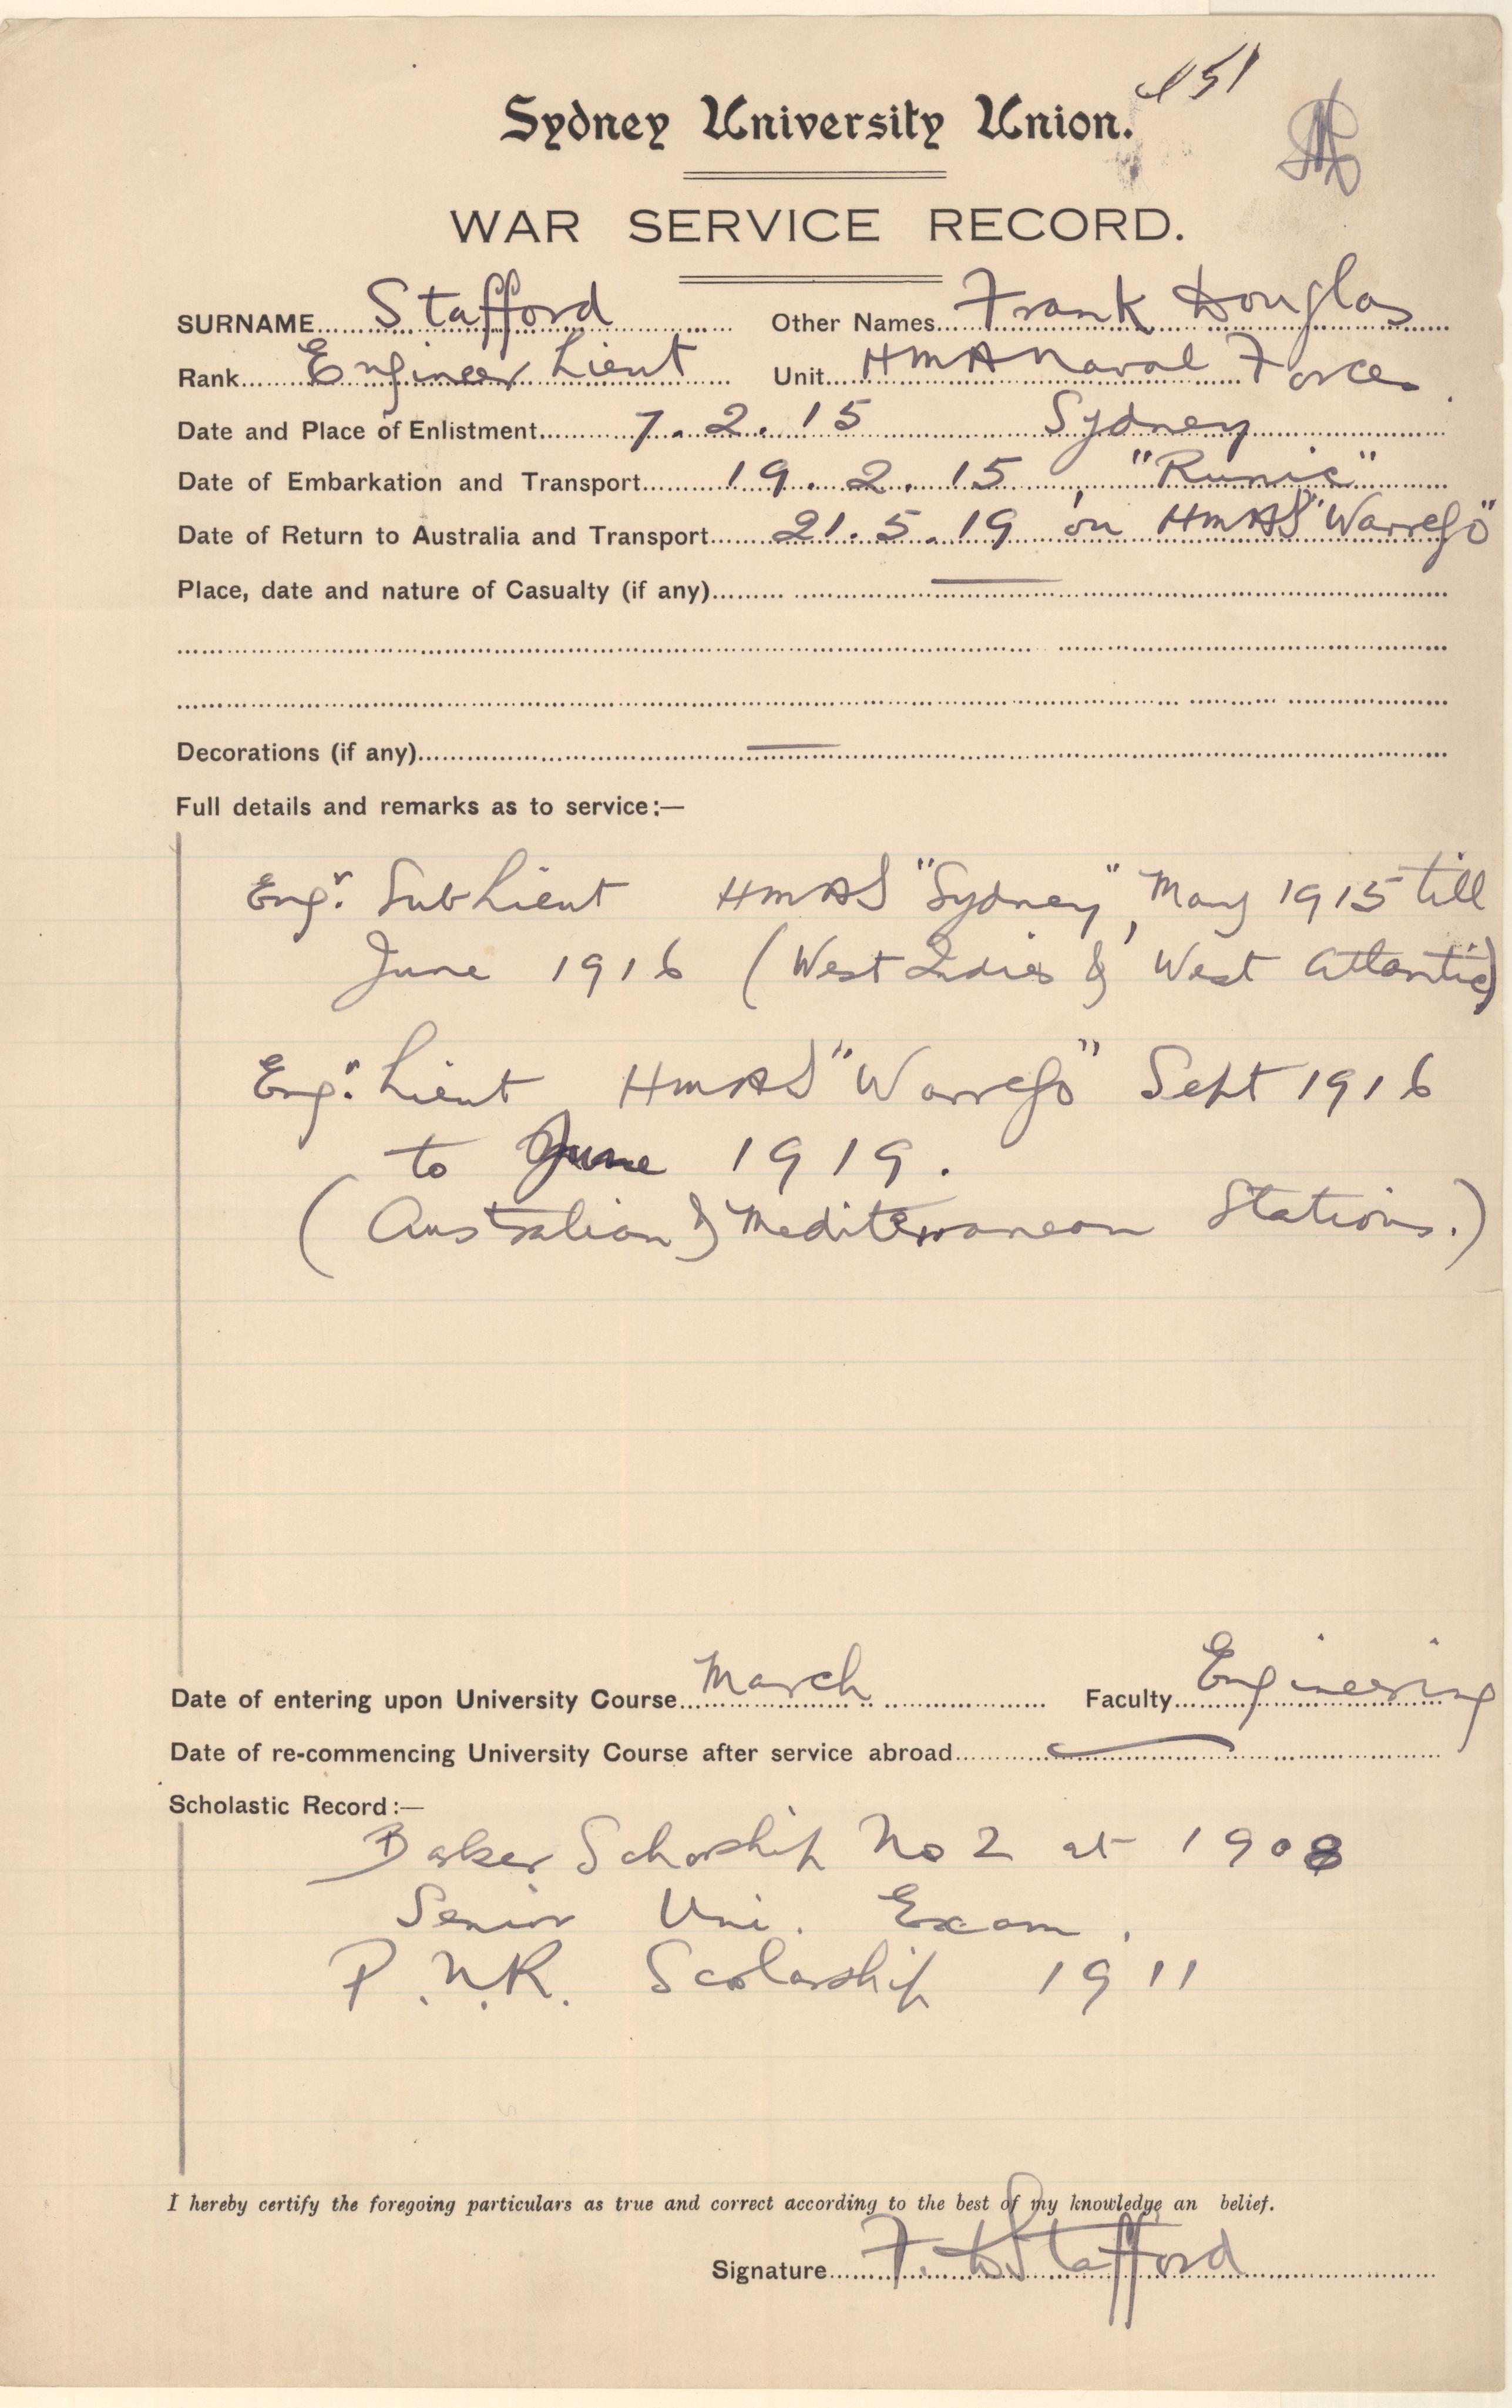 151
Sydney University Union.
WAR SERVICE RECORD.
SURNAME Stafford Other Names Frank Douglas
Rank Engineer Lieut Unit HMA Naval Forces
Date and Place of Enlistment 7.2.15 Sydney
Date of Embarkation and Transport 19.2.15, "Runic"
Date of Return to Australia and Transport 21.5.19 on HMAS "Warrego"
Place, date and nature of Casualty (if any) —
Decorations (if any) —
Full details and remarks as to service:—
Engr. Sub Lieut HMAS "Sydney", May 1915 till
June 1916 (West Indies & West Atlantic)
Engr. Lieut HMAS "Warrego" Sept 1916
to June 1919.
(Australian & Mediterranean Stations.)
Date of entering upon University Course March Faculty Engineering
Date of re-commencing University Course after service abroad —
Scholastic Record:—
Barker Schorship No 2 at 1908
Senior Uni. Exam.
P.N.R. Scolarship 1911
I hereby certify the foregoing particulars as true and correct according to the best of my knowledge an belief.
Signature F. D Stafford